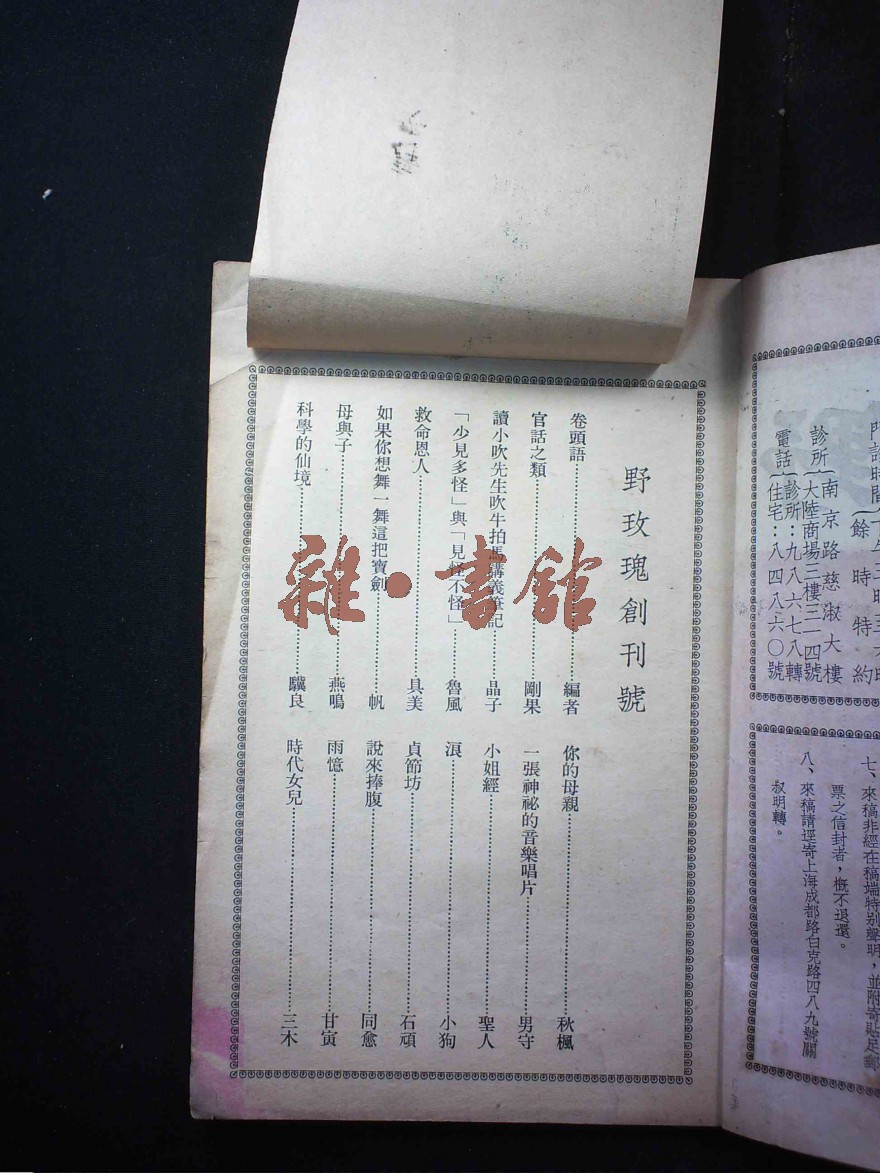 野玫瑰創刊號
卷頭語 編者
官話之類 剛果
讀小吹先生吹牛拍馬講義筆記 晶子
「少見多怪」與「見怪不怪」 魯風
救命恩人 具美
如果你想舞一舞這把寶劍 帆
母與子 燕鳴
科學的仙境 驥良
你的母親 秋楓
一張神祕的音樂唱片 男守
小姐經 聖人
淚 小狗
貞節坊 石頑
說來捧腹 同愈
雨憶 甘寅
時代女兒 三木
雜·書館
餘時特約
診所 南京路慈淑大樓
大陸商場三樓三一四號
電話 診所:九八六七八轉
住宅:八四八六〇號
七、來稿非經在稿端特別聲明,並附寄貼足郵
票之信封者,概不退還。
八、來稿請逕寄上海成都路白克路四八九號關
叔明轉。